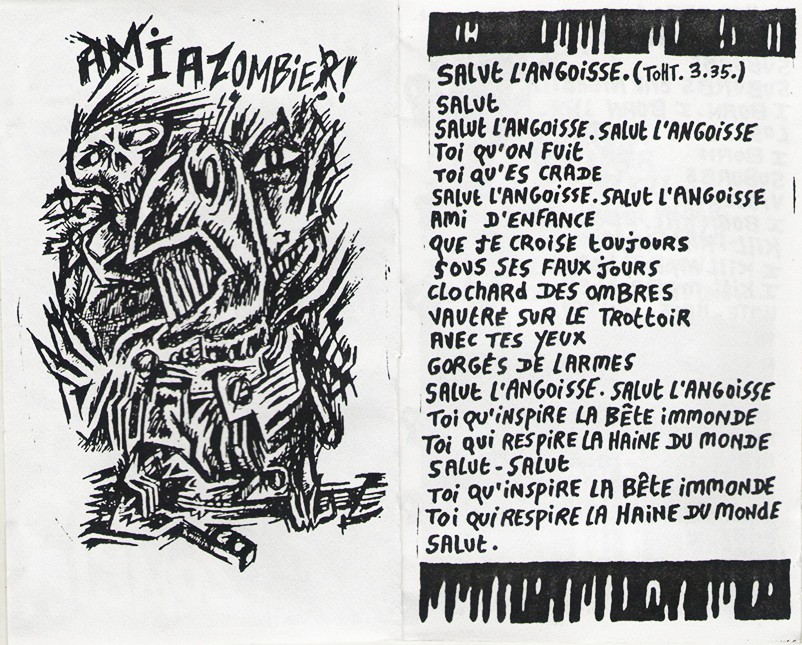 AMI A ZOMBIER!
SALUT L'ANGOISSE. (TOHT. 3.35.)
SALUT
SALUT L'ANGOISSE. SALUT L'ANGOISSE
TOI QU'ON FUIT
TOI QU'ES CRADE
SALUT L'ANGOISSE. SALUT L'ANGOISSE
AMI D'ENFANCE
QUE JE CROISE TOUJOURS
SOUS SES FAUX JOURS
CLOCHARD DES OMBRES
VAUTRÉ SUR LE TROTTOIR
AVEC TES YEUX
GORGÉS DE LARMES
SALUT L'ANGOISSE. SALUT L'ANGOISSE
TOI QU'INSPIRE LA BÊTE IMMONDE
TOI QUI RESPIRE LA HAINE DU MONDE
SALUT - SALUT
TOI QU'INSPIRE LA BÊTE IMMONDE
TOI QUI RESPIRE LA HAINE DU MONDE
SALUT.